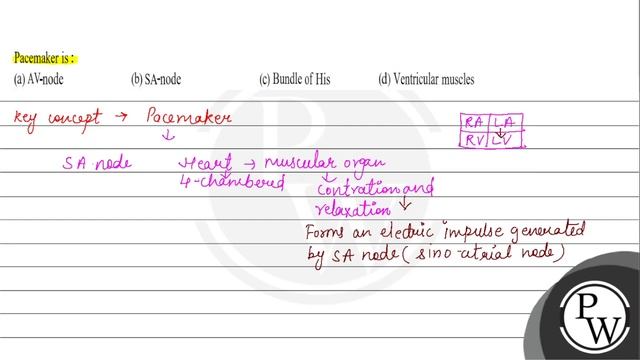 Pacemaker is :
(a) AV-node (b) SA-node (c) Bundle of His (d) Ventricular muscles
Key concept → Pacemaker
RA LA
RV LV
SA node Heart → muscular organ
4-chambered contration and
relaxation
Forms an electric impulse generated
by SA node (sino-atrial node)
P
W